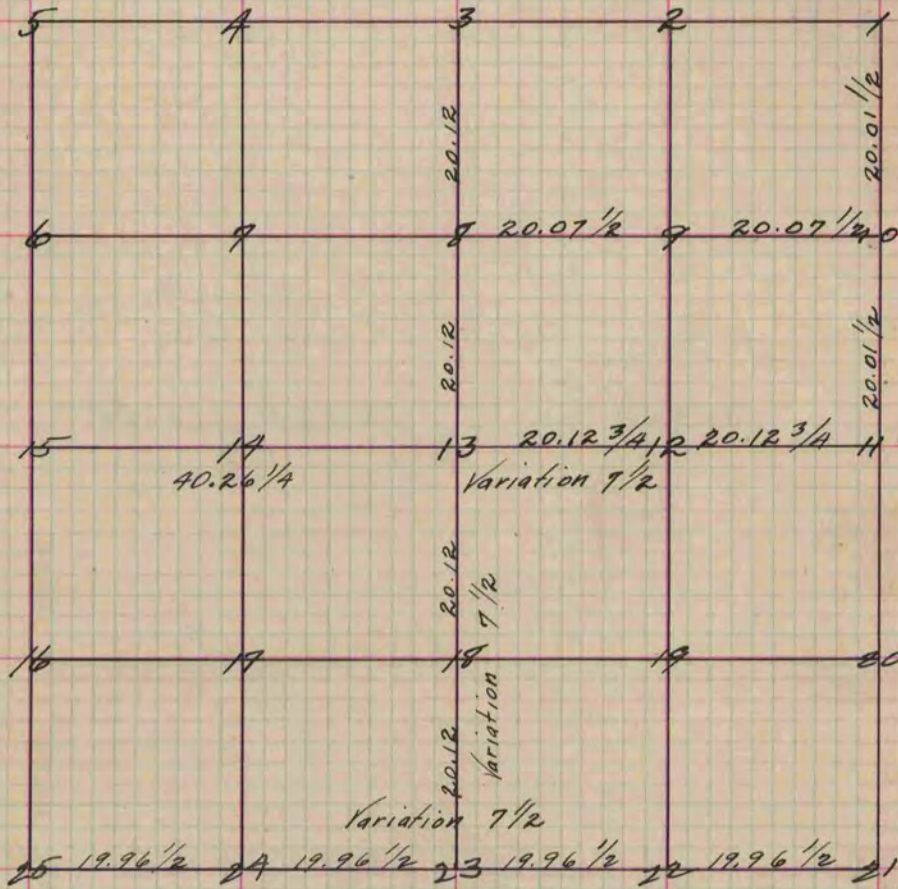 5 4 3 2 1
20.12
20.01 1/2
6 7 8 20.07 1/2 9 20.07 1/2 10
20.12
20.01 1/2
15 14 13 20.12 3/4 12 20.12 3/4 11
40.26 1/4
Variation 7 1/2
20.12
Variation 7 1/2
16 17 18 19 20
20.12
Variation 7 1/2
25 19.96 1/2 24 19.96 1/2 23 19.96 1/2 22 19.96 1/2 21